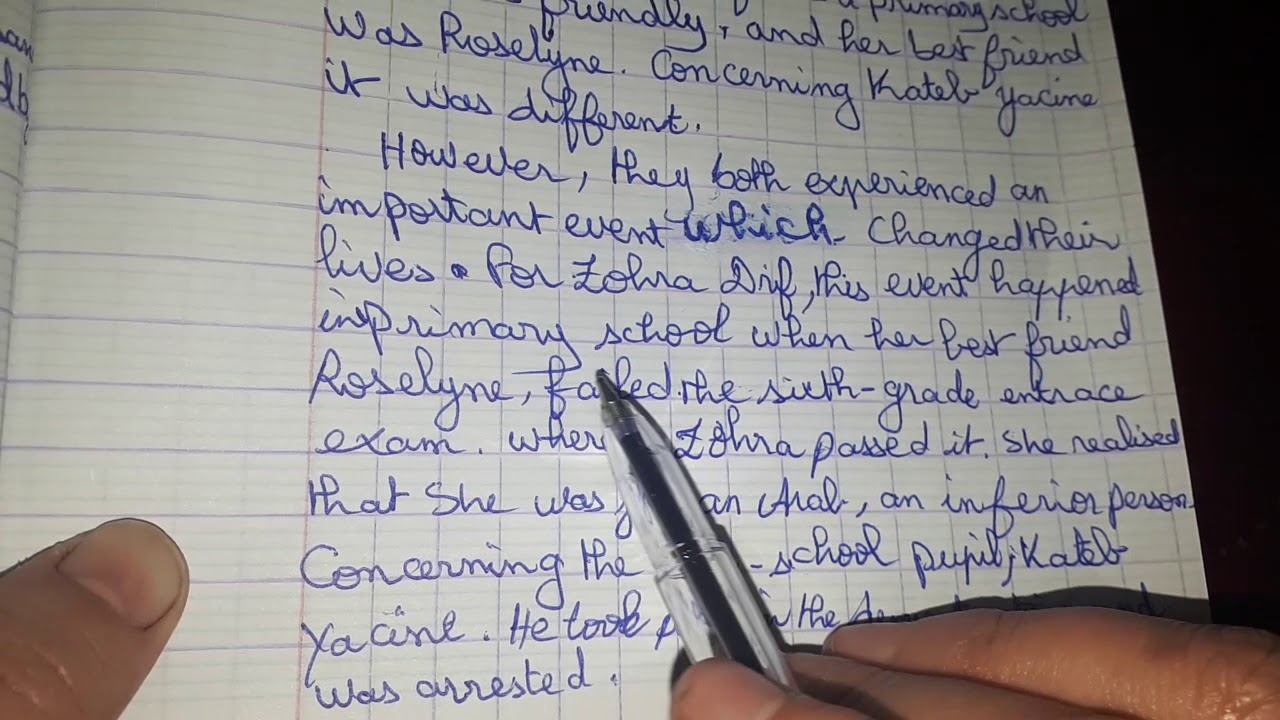 friendly, a primary school
Was Roselyne. Concerning Kateb Yacine
it was different.
However, they both experienced an
important event which changed their
lives. For Zohra Drif, this event happened
in primary school when her best friend
Roselyne, failed the sixth-grade entrace
exam. Zohra passed it. She realised
that She was an Arab, an inferior person.
Concerning the -school pupil, Kateb
Yacine. He took in the
was arrested.